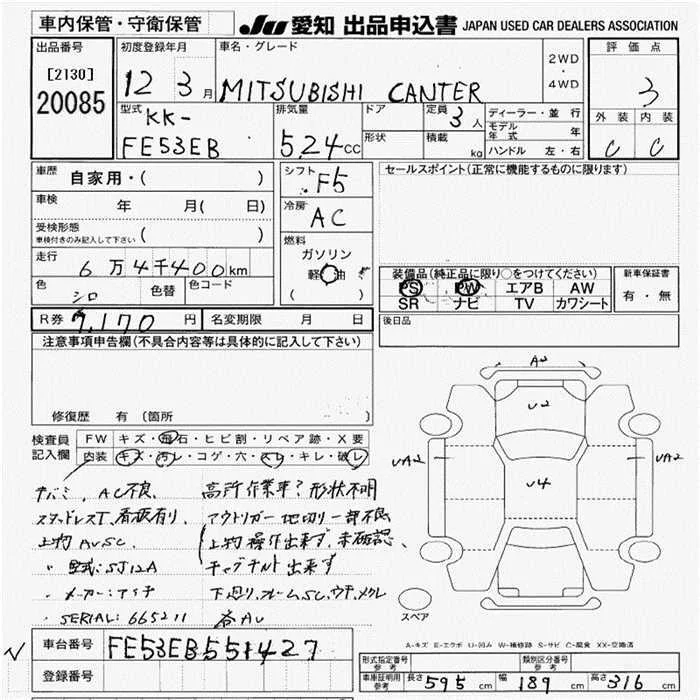 車内保管・守衛保管
JU 愛知 出品申込書 JAPAN USED CAR DEALERS ASSOCIATION
出品番号 初度登録年月 車名・グレード 評価点
[2130]
20085
12 3月 MITSUBISHI CANTER 2WD・4WD 3
型式 KK-FE53EB 排気量 5.24cc ドア 形状 定員 3人 積載 kg
ディーラー・並行
モデル年式 年
ハンドル 左・右
外装 内装
C C
車歴 自家用・( )
シフト F5
セールスポイント(正常に機能するものに限ります)
車検 年 月( 日)
冷房 AC
受検形態
車検付きのみ記入して下さい ( )
燃料
ガソリン
軽油
( )
走行 6万4千400km
色 シロ 色替 色コード
装備品(純正品に限り○をつけてください)
PS PW エアB AW
SR ナビ TV カワシート
新車保証書
有・無
R券 9,170円 名変期限 月 日
後日品
注意事項申告欄(不具合内容等は具体的に記入して下さい)
修復歴 有(箇所 )
検査員
記入欄
FW キズ・飛石・ヒビ割・リペア跡・X要
内装 キズ・汚レ・コゲ・穴・スレ・キレ・破レ
A2
U2
UA2
UA2
U4
スペア
AC不良、
高所作業車?形状不明
スタッドレスT、看板有り、
アウトリガー地切り一部不良
上物AUSC、
上物操作出来ず、未確認、
〃型式:SJ12A
チャブチルト出来ず
〃メーカー:アイチ
下廻り、フレームSC、
〃SERIAL:665211
各AU
A-キズ E-エクボ U-凹み W-補修跡 S-サビ C-腐食 XX-交換済
✓ 車台番号 FE53EB551427
登録番号
形式指定番号 参考 類別区分番号 参考
車庫証明用 参考 長さ 595cm 幅 189cm 高さ 316cm